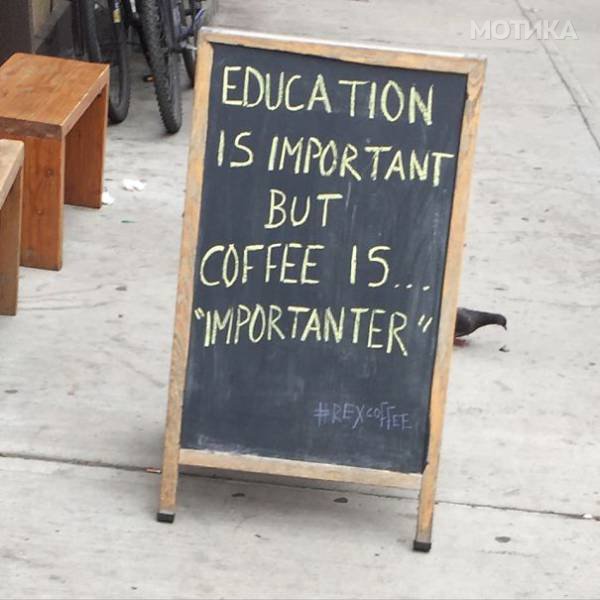 МОТИКА
EDUCATION
IS IMPORTANT
BUT
COFFEE IS...
"IMPORTANTER"
#REXCOFFEE